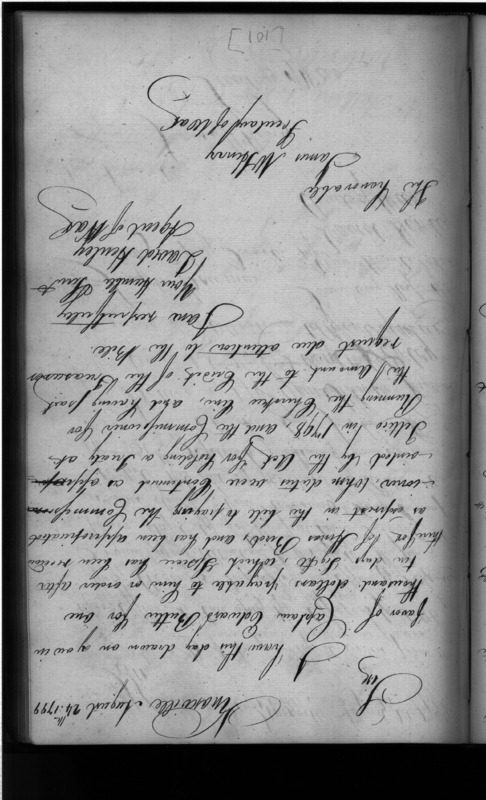 Knoxville August 24th. 1799
Sir,
I have this day drawn on you in
favor of Captain Edward Butler for one
thousand dollars payable to him or order after
ten days sight, which specie has been received
therefor of Bird, and has been appropriated
as expressed in the bill to paying the Commission
-ioners. When duties were Contained as
-ointed by the Act for holding a Treaty at
Tellico in 1798, and the Commissioners for
Running the Cherokee line, and having past
the Amount to the Credit of the Treasurer
request due attention to the Bill.
I am respectfuley
Your Humble Servt
David Henley
Agent of War
The honorable
James McHenry
Secretary of War
[101]